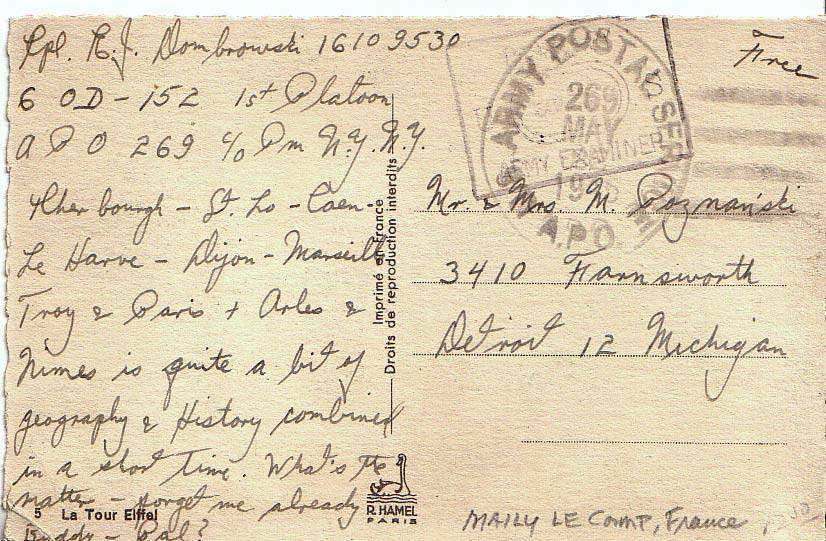 Cpl. E.J. Dombrowski 16109530
6 OD-152 1st Platoon
A P O 269 c/o P m N.Y. N.Y.
Cherbourgh - St. Lo - Caen -
Le Harve - Dijon - Marseille
Troy & Paris + Arles &
Nimes is quite a bit of
geography & History combined
in a short time. What's the
matter - forget me already
Buddy - Pal?
5 La Tour Eiffel
Imprimé en France
Droits de reproduction interdits
R. HAMEL
PARIS
ARMY POSTAL SER
269
MAY
A.P.O.
ARMY EXAMINER
Free
Mr. & Mrs. M. Poznański
3410 Farnsworth
Detroit 12 Michigan
MAILY LE COMP, France